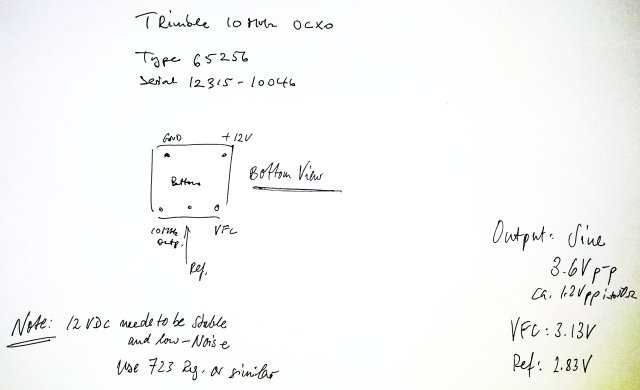 Trimble 10 MHz OCXO
Type 65256
Serial 12315-10046
GND +12V
Bottom
Bottom View
10MHz VFC
Outp.
Ref.
Output: Sine
3.6Vp-p
ca. 1.2Vpp into
VFC: 3.13V
Ref: 2.83V
Note: 12 VDC needs to be Stable
and low-Noise
Use 723 Reg. or similar